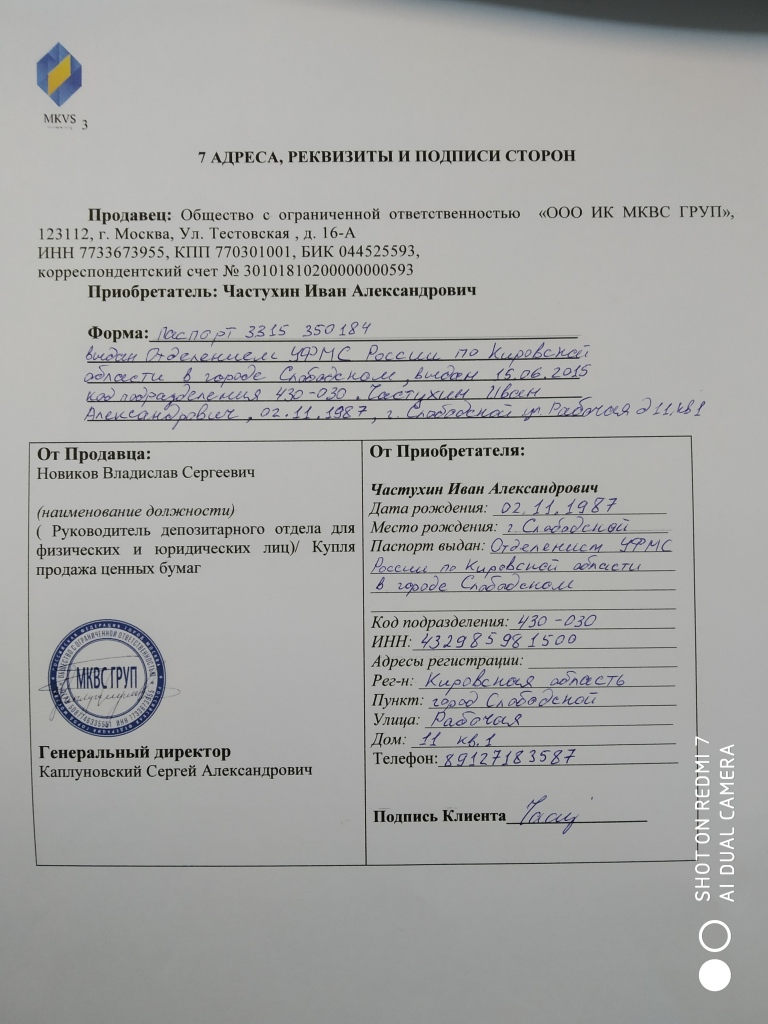 MKVS 3
7 АДРЕСА, РЕКВИЗИТЫ И ПОДПИСИ СТОРОН
Продавец: Общество с ограниченной ответственностью «ООО ИК МКВС ГРУП»,
123112, г. Москва, Ул. Тестовская , д. 16-А
ИНН 7733673955, КПП 770301001, БИК 044525593,
корреспондентский счет № 30101810200000000593
Приобретатель: Частухин Иван Александрович
Форма: Паспорт 3315 350184
выдан Отделением УФМС России по Кировской
области в городе Слободском, выдан 15.06.2015
код подразделения 430-030, Частухин Иван
Александрович, 02.11.1987, г. Слободской ул Рабочая д 11, кв 1
От Продавца:
Новиков Владислав Сергеевич
(наименование должности)
( Руководитель депозитарного отдела для
физических и юридических лиц)/ Купля
продажа ценных бумаг
МКВС ГРУП
Генеральный директор
Каплуновский Сергей Александрович
От Приобретателя:
Частухин Иван Александрович
Дата рождения: 02.11.1987
Место рождения: г. Слободской
Паспорт выдан: Отделением УФМС
России по Кировской области
в городе Слободском
Код подразделения: 430-030
ИНН: 432985981500
Адресы регистрации:
Рег-н: Кировская область
Пункт: город Слободской
Улица: Рабочая
Дом: 11 кв.1
Телефон: 89127183587
Подпись Клиента
SHOT ON REDMI 7
AI DUAL CAMERA